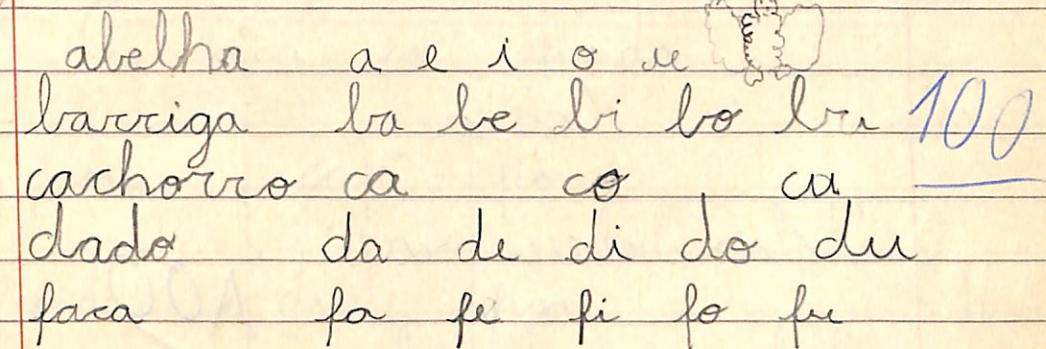 abelha a e i o u
barriga ba be bi bo bu 100
cachorro ca co cu
dado da de di do du
faca fa fe fi fo fu